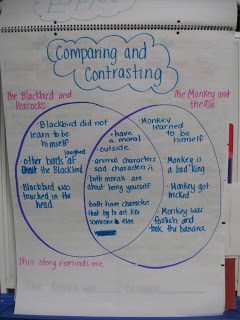 Comparing and
Contrasting
The Blackbird and
Peacocks
The Monkey and
the Fox
Blackbird did not
learn to be
himself
laughed
other birds at
the Blackbird
Blackbird was
touched in the
head
have
a moral
outside
animal characters
sad characters
both morals are
about being yourself
both have characters
that try to act like
someone else
Monkey
learned to be
himself
Monkey is
a bad king
Monkey got
tricked
Monkey was
foolish and
took the banana
This story reminds me